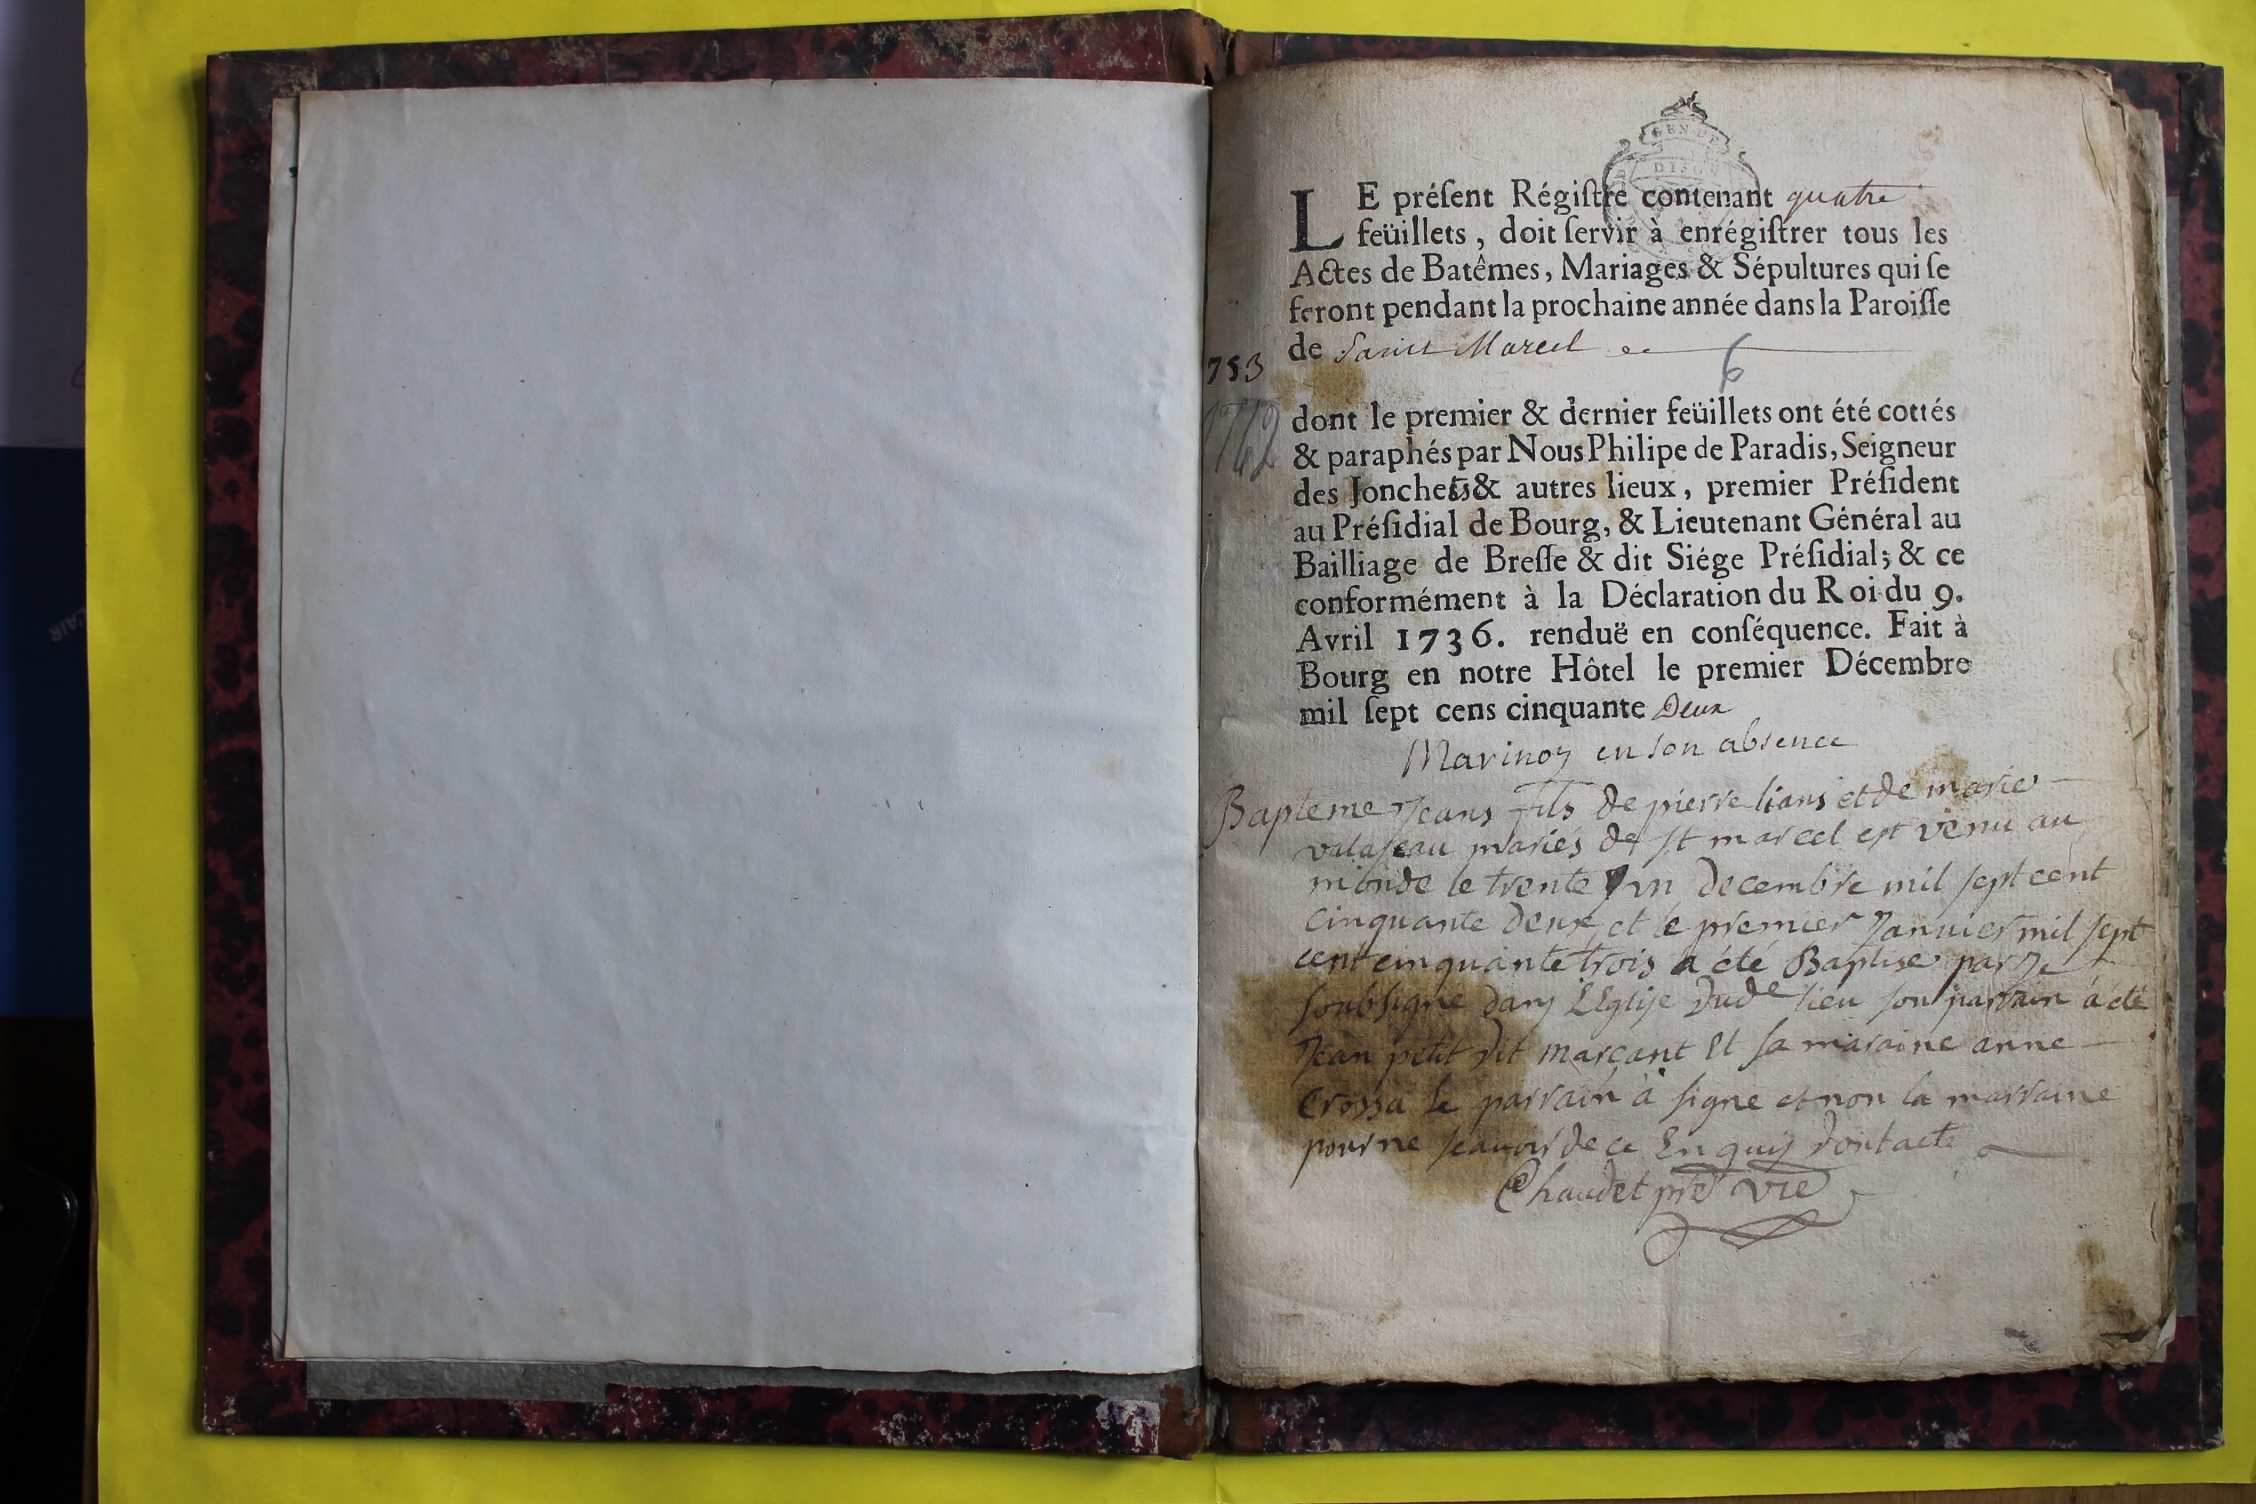 GEN DE
DIJON
LE préſent Régiſtre contenant quatre
feüillets, doit ſervir à enrégiſtrer tous les
Actes de Batêmes, Mariages & Sépultures qui ſe
feront pendant la prochaine année dans la Paroiſſe
de Sainct Marcel
753
6
1762
dont le premier & dernier feüillets ont été cottés
& paraphés par Nous Philipe de Paradis, Seigneur
des Jonchets & autres lieux, premier Préſident
au Préſidial de Bourg, & Lieutenant Général au
Bailliage de Breſſe & dit Siége Préſidial; & ce
conformément à la Déclaration du Roi du 9.
Avril 1736. renduë en conſéquence. Fait à
Bourg en notre Hôtel le premier Décembre
mil ſept cens cinquante Deux
en son absence
Bapteme Jeans fils de pierre lians et de marie
mariés de st marcel est venu au
monde le trente un decembre mil sept cent
cinquante deux et le premier Janvier mil sept
cent cinquante trois a été Baptise par Je
soubsigne dans LEglise dude lieu son parrain à été
Jean petit dit marcant Et sa maraine anne
Crossa le parrain à signe et non la marraine
pour ne scavoir de ce Enquis dont acte
Chaudet ptre vre